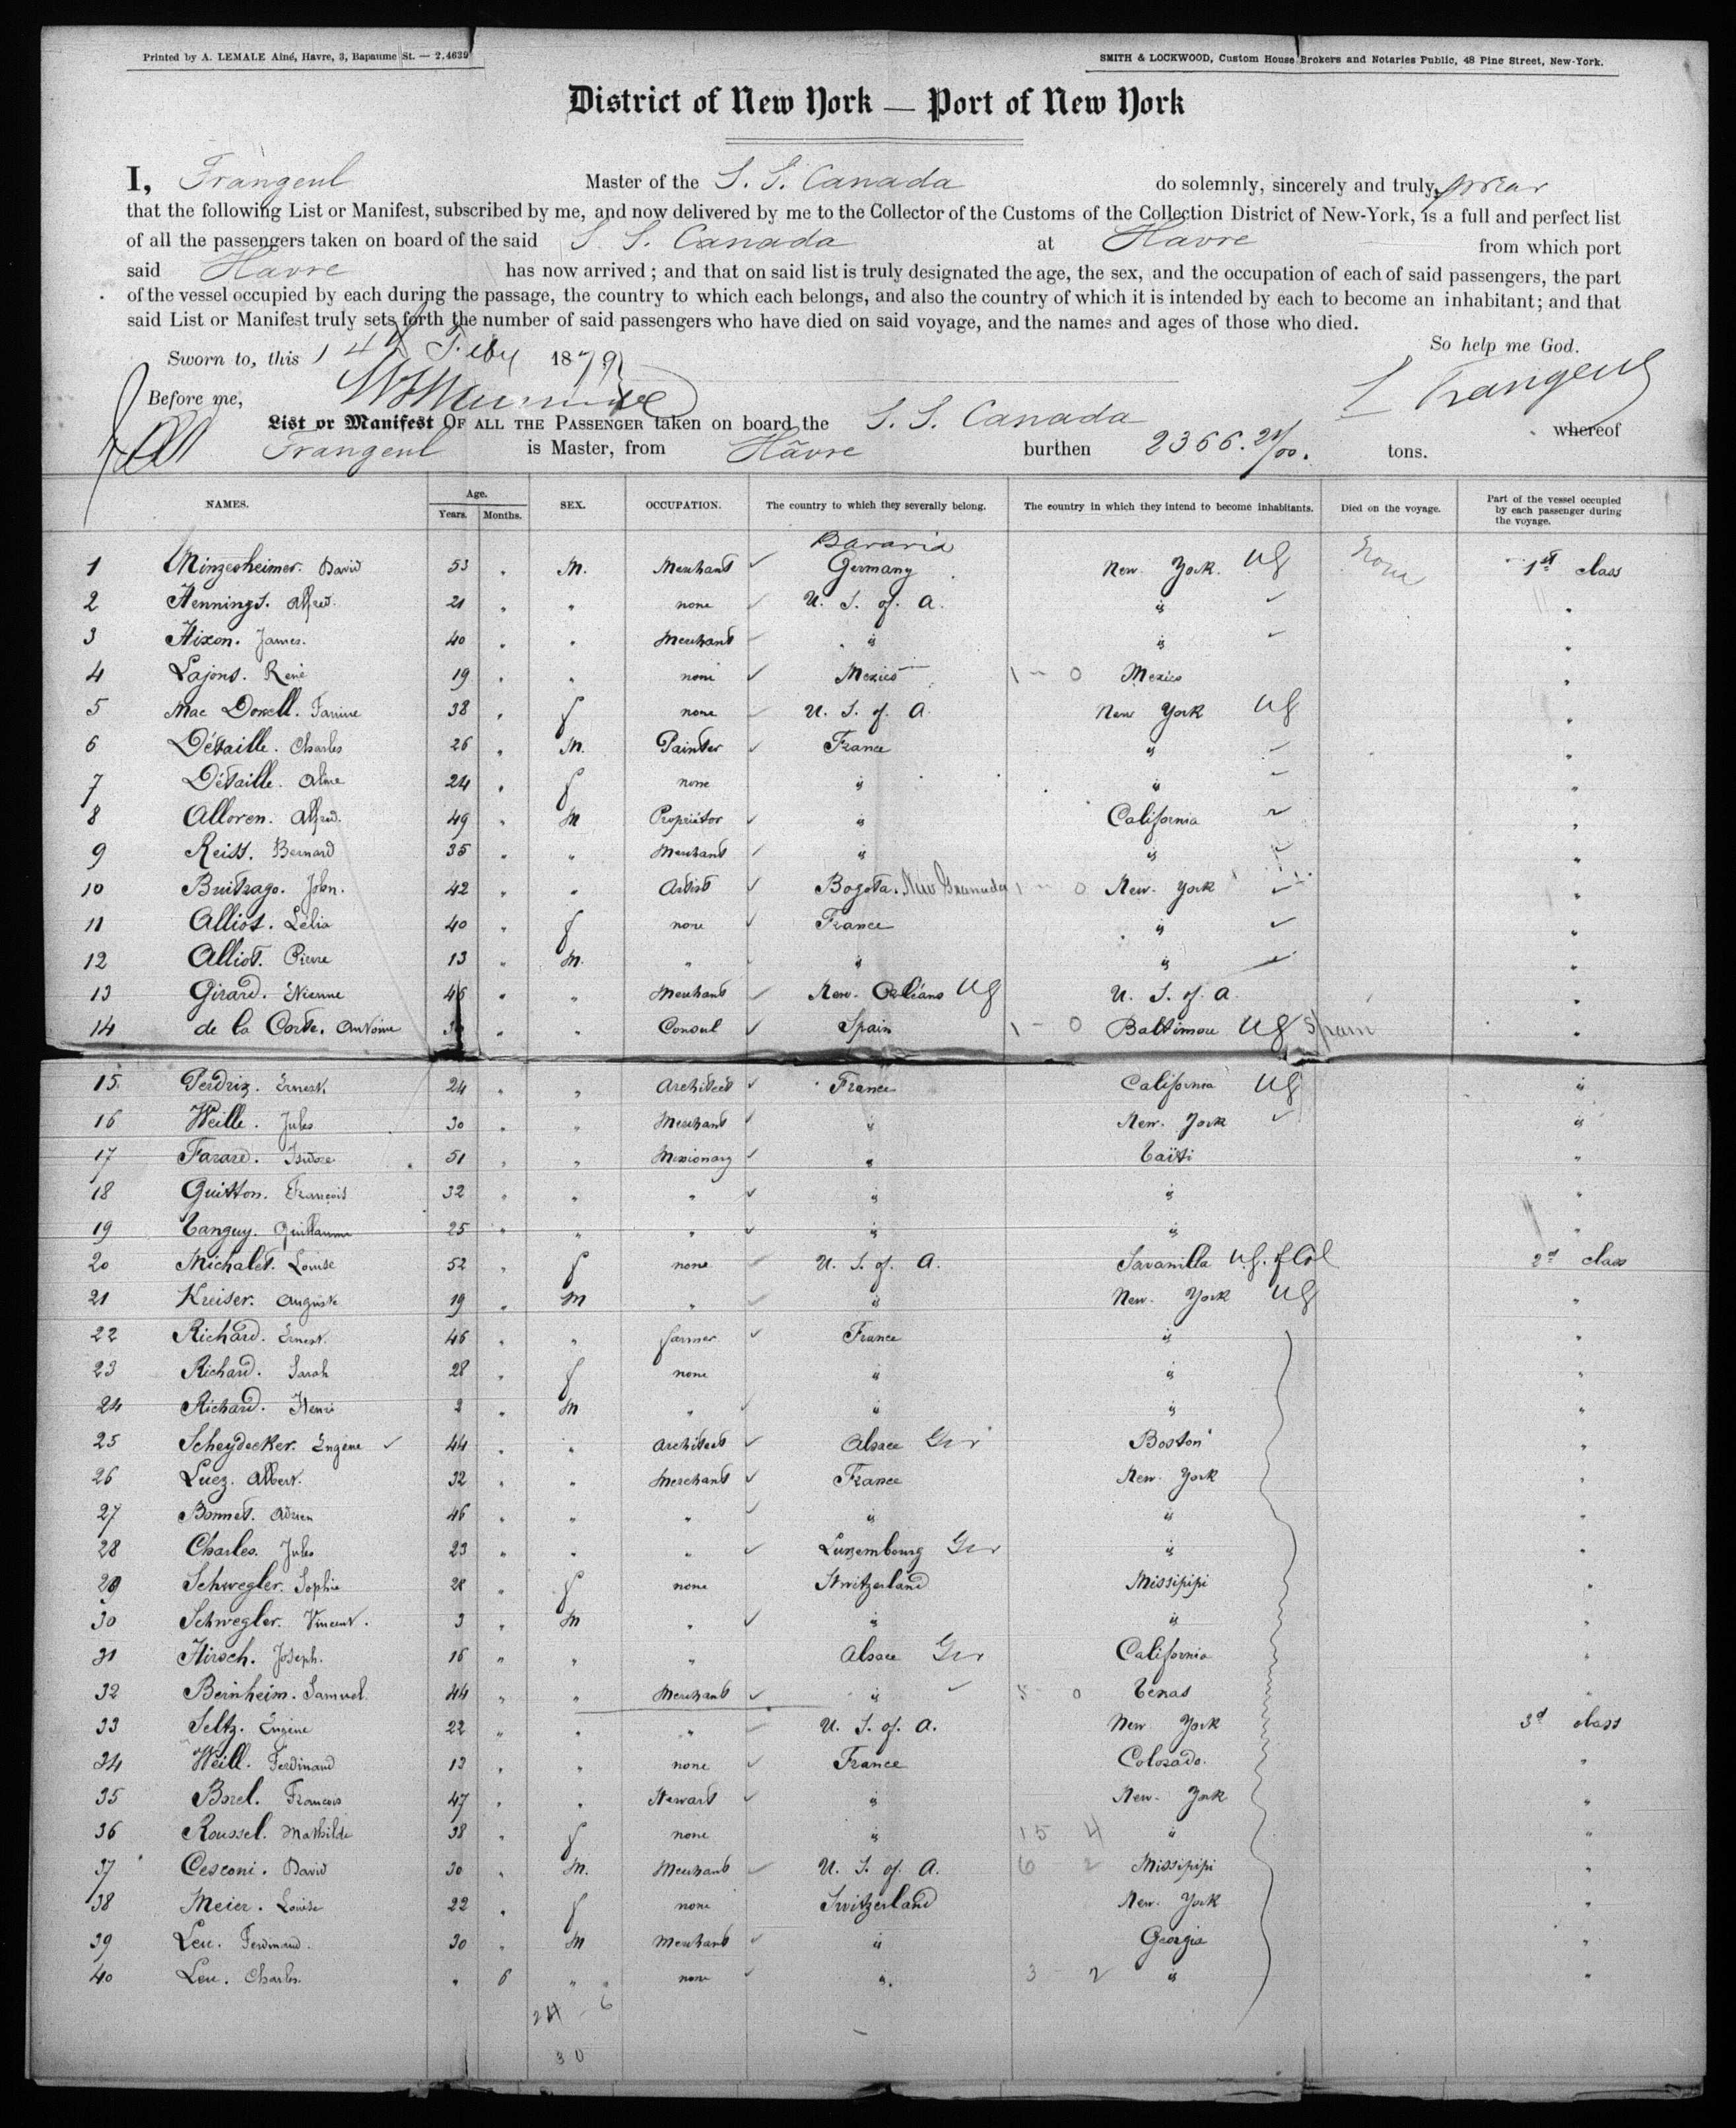 Printed by A. LEMALE Aîné, Havre, 3, Bapaume St. — 2.4639
SMITH & LOCKWOOD, Custom House Brokers and Notaries Public, 48 Pine Street, New-York.
District of New York — Port of New York
I, Frangeul Master of the S. S. Canada do solemnly, sincerely and truly, swear
that the following List or Manifest, subscribed by me, and now delivered by me to the Collector of the Customs of the Collection District of New-York, is a full and perfect list
of all the passengers taken on board of the said S. S. Canada at Havre from which port
said Havre has now arrived ; and that on said list is truly designated the age, the sex, and the occupation of each of said passengers, the part
of the vessel occupied by each during the passage, the country to which each belongs, and also the country of which it is intended by each to become an inhabitant; and that
said List or Manifest truly sets forth the number of said passengers who have died on said voyage, and the names and ages of those who died.
So help me God.
Sworn to, this 14th Feby 1879
Before me, Frangeul
List or Manifest OF ALL THE PASSENGER taken on board the S. S. Canada whereof
Frangeul is Master, from Hâvre burthen 2366. 21/00. tons.
NAMES. Age. Years. Months. SEX. OCCUPATION. The country to which they severally belong. The country in which they intend to become inhabitants. Died on the voyage. Part of the vessel occupied by each passenger during the voyage.
Bavaria
1 Minzesheimer. David 53 " M. Merchant Germany New York. US None 1st class
2 Hennings. Alfred. 21 " " none U. S. of. A. " "
3 Hixon. James. 40 " " Merchant " " "
4 Lajons. René 19 " " none Mexico 1 - 0 Mexico "
5 Mac Donell. Fannie 38 " f none U. S. of. A. New York US "
6 Détaille. Charles 26 " M. Painter France " "
7 Détaille. Aline 24 " f none " " "
8 Alloren. Alfred. 49 " M Propriétor " California "
9 Reiss. Bernard 35 " " Merchant " " "
10 Buitrago. John. 42 " " Artist Bogota. New Granada 1 - 0 New York "
11 Alliot. Lélia 40 " f none France " "
12 Alliot. Pierre 13 " M. " " " "
13 Girard. Etienne 46 " " Merchant New. Orléans US U. S. of. A. "
14 de la Corte. Antoine " " Consul Spain 1 - 0 Baltimore US Spain "
15. Perdriz. Ernest. 24 " " Architect France California US "
16 Weille. Jules 30 " " Merchant " New. York "
17 Farard. Isidore 51 " " Missionary " Taïti "
18 Guitton. François 32 " " " " " "
19 Tanguy. Guillaume 25 " " " " " "
20 Michalet. Louise 52 " f none U. S. of. A. Savanilla US. of Col 2d class
21 Kreiser. Auguste 19 " M " " New York US "
22 Richard. Ernest. 46 " " farmer France " "
23 Richard. Sarah 28 " f none " " "
24 Richard. Henri 2 " M " " " "
25 Scheydecker. Eugène 44 " " Architect Alsace Ger Boston "
26 Luez. Albert. 32 " " Merchant France New. York "
27 Bonnet. Adrien 46 " " " " " "
28 Charles. Jules 23 " " " Luxembourg Ger " "
29 Schwegler. Sophie 28 " f none Switzerland Missipipi "
30 Schwegler. Vincent. 3 " M " " " "
31 Hirsch. Joseph. 16 " " " Alsace Ger California "
32 Bernheim. Samuel 44 " " Merchant " 5 - 0 Texas "
33 Seltz. Eugène 22 " " " U. S. of. A. New York 3d class
34 Weill. Ferdinand 13 " " none France Colorado. "
35 Borel. François 47 " " Stewart " New. York "
36 Roussel. Mathilde 38 " f none " 15 4 " "
37 Cesconi. David 30 " M. Merchant U. S. of. A. 6 2 Missipipi "
38 Meier. Louise 22 " f none Switzerland New. York "
39 Leu. Ferdinand. 30 " M Merchant " Georgia "
40 Leu. Charles. " 6 " none " 3 - 2 " "
24 - 6
30